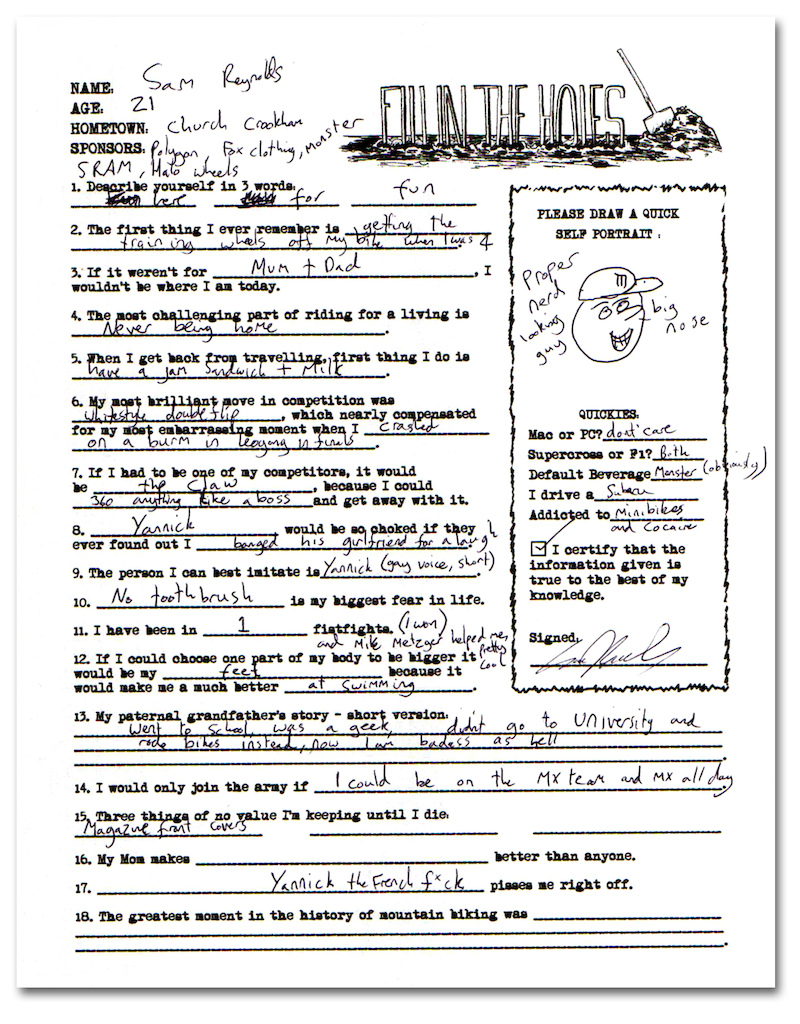 FILL IN THE HOLES
NAME: Sam Reynolds
AGE: 21
HOMETOWN: Church Crookham
SPONSORS: Polygon, Fox clothing, Monster
SRAM, Halo wheels
1. Describe yourself in 3 words:
here for fun
2. The first thing I ever remember is getting the
training wheels off my bike when I was 4
3. If it weren't for Mum + Dad, I
wouldn't be where I am today.
4. The most challenging part of riding for a living is
Never being home.
5. When I get back from travelling, first thing I do is
have a jam sandwich + Milk.
6. My most brilliant move in competition was
Whitestyle double flip, which nearly compensated
for my most embarrassing moment when I crashed
on a burm in leogang in finals.
7. If I had to be one of my competitors, it would
be the claw, because I could
360 anything like a boss and get away with it.
8. Yannick would be so choked if they
ever found out I banged his girlfriend for a laugh.
9. The person I can best imitate is Yannick (gay voice, short)
10. No toothbrush is my biggest fear in life.
11. I have been in 1 fistfights. (I won)
and Mike Metzger helped me,
pretty
cool
12. If I could choose one part of my body to be bigger it
would be my feet because it
would make me a much better at swimming.
13. My paternal grandfather's story - short version:
Went to school, was a geek, didn't go to University and
rode bikes instead, now I am badass as hell
14. I would only join the army if I could be on the MX team and MX all day
15. Three things of no value I'm keeping until I die:
Magazine front covers
16. My Mom makes better than anyone.
17. Yannick the French f*ck pisses me right off.
18. The greatest moment in the history of mountain biking was
.
PLEASE DRAW A QUICK
SELF PORTRAIT :
Proper
nerd
looking
guy
big
nose
QUICKIES.
Mac or PC? dont care
Supercross or F1? Both
Default Beverage Monster (obviously)
I drive a Subaru
Addicted to Minibikes
and Cocaine
I certify that the
information given is
true to the best of my
knowledge.
Signed,